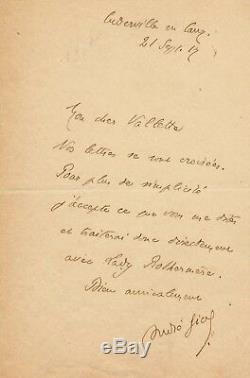 Cuverville en Caux.
21 Sept. 17
Mon cher Vallette
Vos lettres se sont croisées.
Pour plus de simplicité
j'accepte ce que vous me dites
et traiterai donc directement
avec Lady Rothermere.
Bien amicalement
André Gide